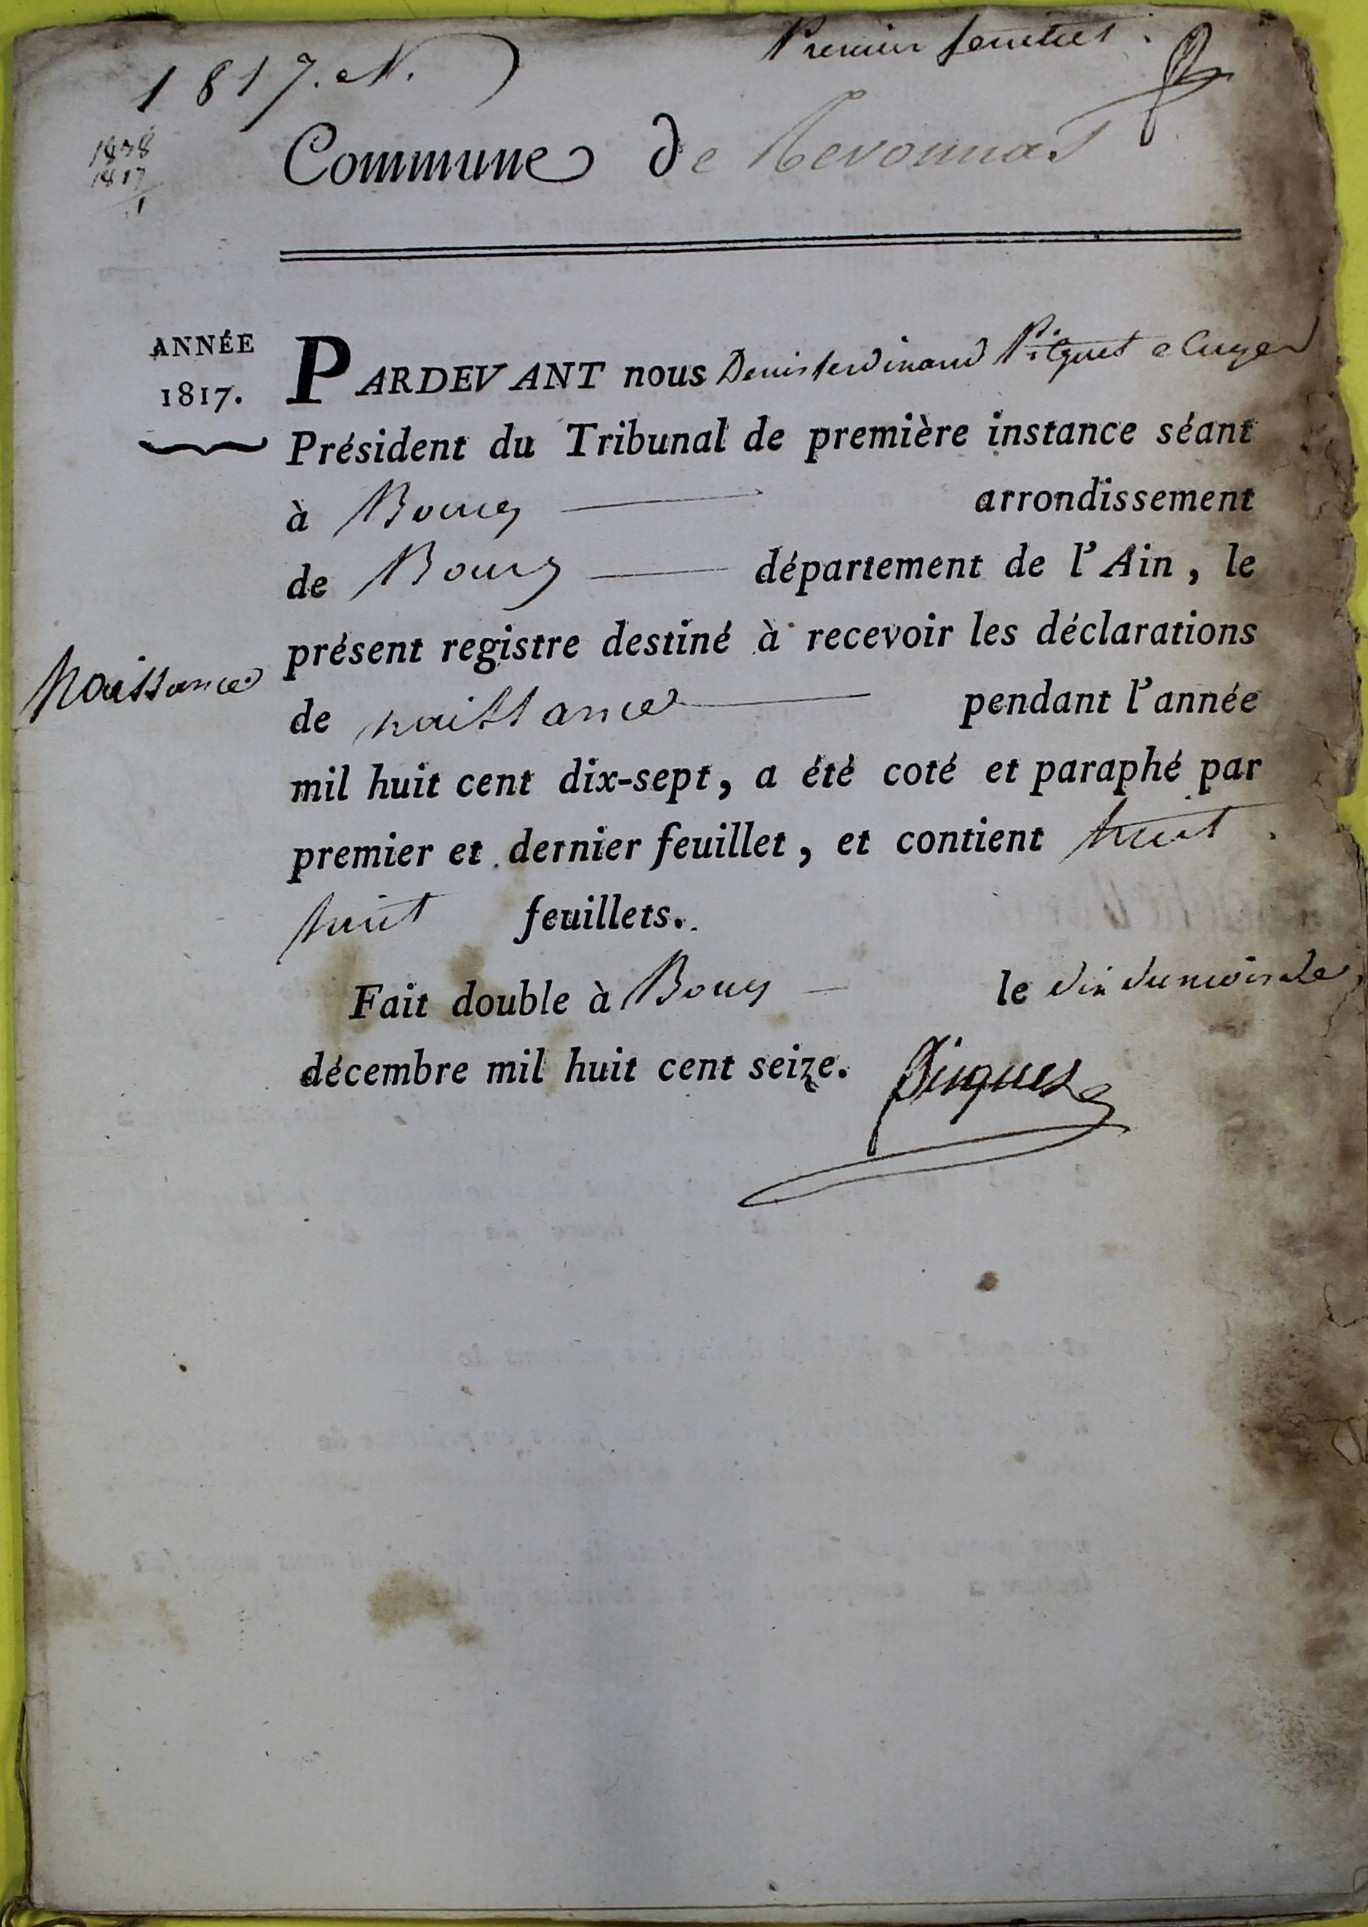 1817. N.
Premier feuillet.
1817
1
Commune de Revonnas
ANNÉE
1817.
PARDEVANT nous Denis ferdinand Picquet
Président du Tribunal de première instance séant
à Bourg arrondissement
de Bourg département de l'Ain, le
présent registre destiné à recevoir les déclarations
Naissance
de naissance pendant l'année
mil huit cent dix-sept, a été coté et paraphé par
premier et dernier feuillet, et contient huit
huit feuillets.
Fait double à Bourg le dix du mois de
décembre mil huit cent seize. Picquet